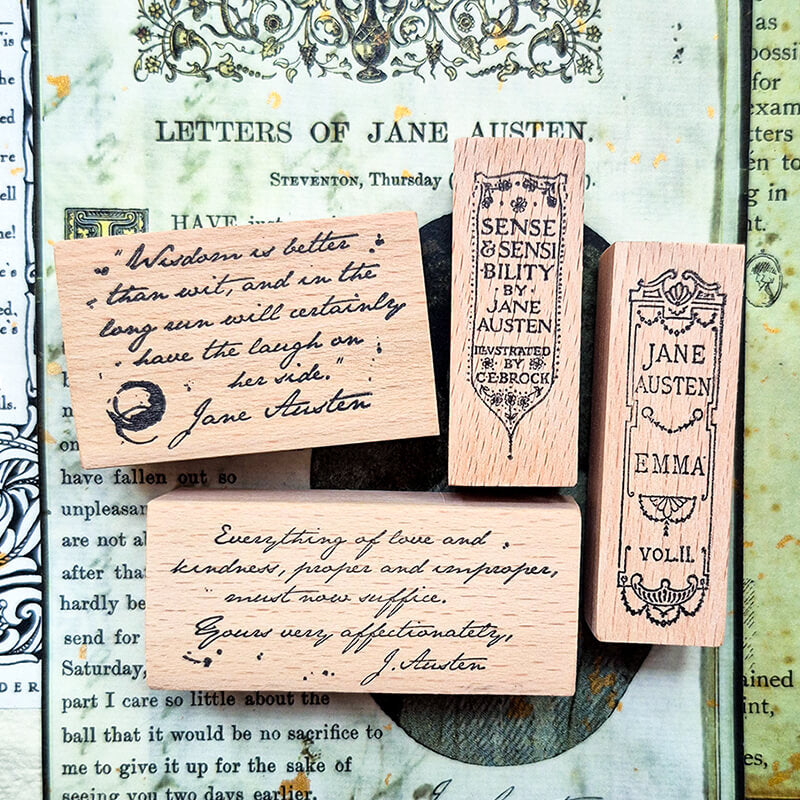 LETTERS OF JANE AUSTEN.
STEVENTON, Thursday
I HAVE just
"Wisdom is better
than wit, and in the
long run will certainly
have the laugh on
her side."
Jane Austen
SENSE
& SENSI
·BILITY
BY·
JANE
AUSTEN
ILLUSTRATED
BY
C·E·BROCK
JANE
AUSTEN
EMMA
VOL.II.
Everything of love and
kindness, proper and improper,
must now suffice.
Yours very affectionately,
J. Austen
have fallen out so
are not
after
hardly be
send for
Saturday,
part I care so little about the
ball that it would be no sacrifice to
me to give it up for the sake of
seeing you two days earlier.
as
for
in